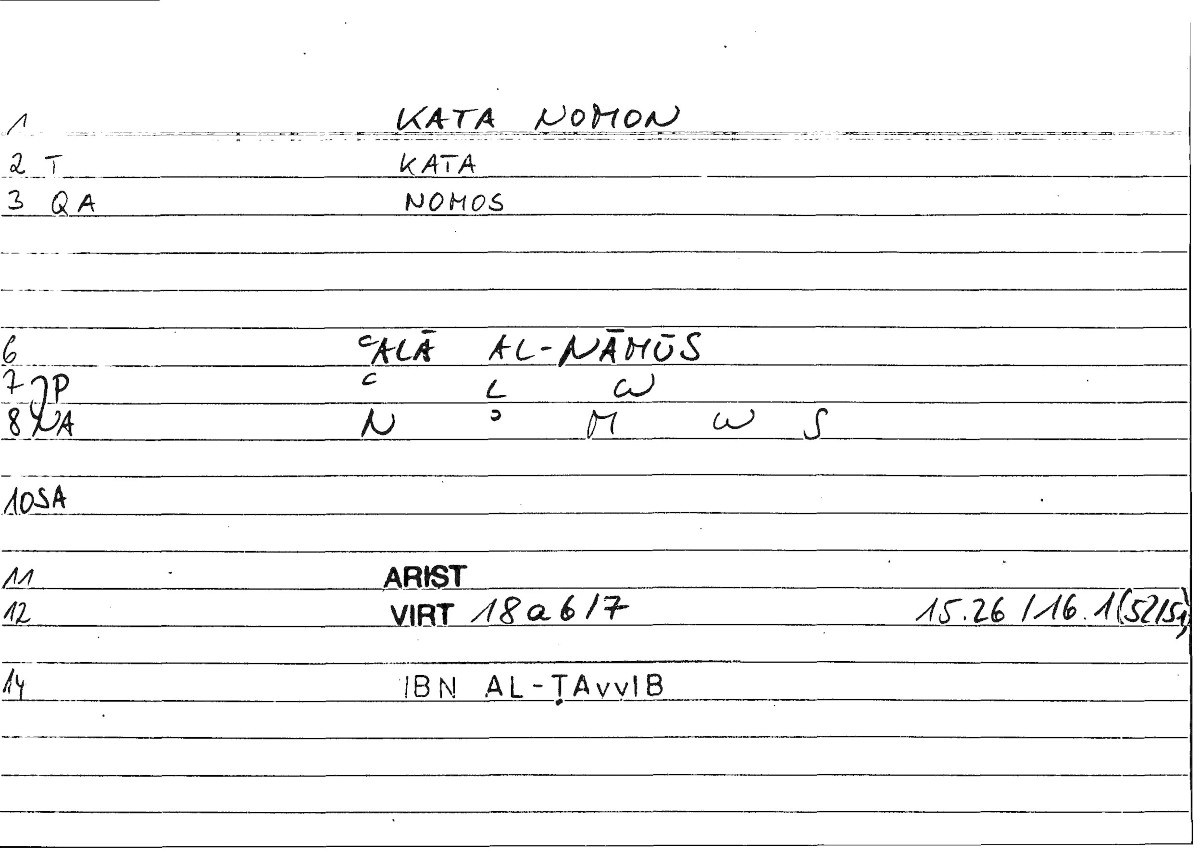 1 KATA NOMON
2 T KATA
3 QA NOMOS
6 ʿALĀ AL-NĀMŪS
7 JP ʿ L W
8 NA N ʾ M W S
10SA
11 ARIST
12 VIRT 18a6/7 15.26/16.1(52/51)
14 IBN AL-ṬAvvIB